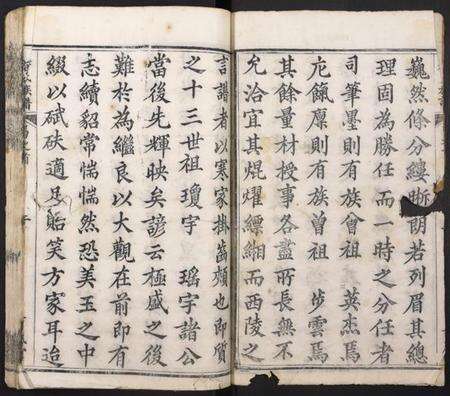 巍然條分縷晰朗若列眉其總
理固為勝任而一時之分任者
司筆墨則有族曾祖 英杰焉
庀餼廩則有族曾祖 步雲焉
其餘量材授事各盡所長無不
允洽宜其焜燿縹緗而西陵之
言譜者以寒家掛齒頰也即質
之十三世祖瓊宇 瑤宇諸公
當後先輝映矣諺云極盛之後
難於為繼良以大觀在前即有
志續貂常惴惴然恐美玉之中
綴以碔砆適足貽笑方家耳迨